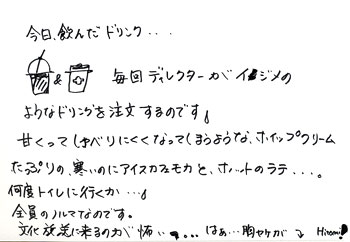 今日、飲んだドリンク・・・
& 毎回ディレクターがイジメの
ようなドリンクを注文するのです。
甘くってしゃべりにくくなってしまうような、ホイップクリーム
たっぷりの、寒いのにアイスカフェモカと、ホットのラテ・・・。
何度トイレに行くか・・・。
全員のノルマなのです。
文化放送に来るのが怖い・・・。はぁ…胸ヤケが Hiromi